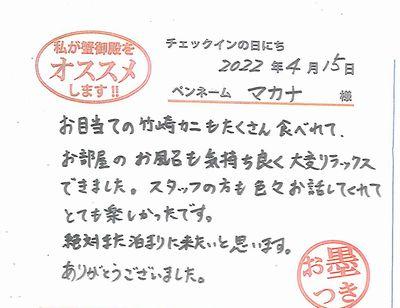 私が蟹御殿を
オススメ
します!!
チェックインの日にち
2022年4月15日
ペンネーム マカナ 様
お目当ての竹崎カニもたくさん食べれて、
お部屋のお風呂も気持ち良く大変リラックス
できました。スタッフの方も色々お話してくれて
とても楽しかったです。
絶対また泊まりに来たいと思います。
ありがとうございました。
お墨
つき